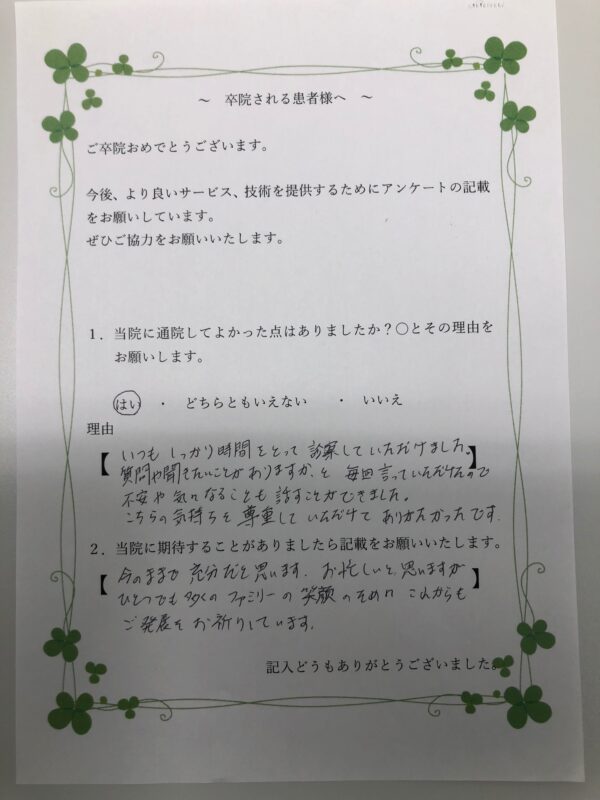 ～ 卒院される患者様へ ～
ご卒院おめでとうございます。
今後、より良いサービス、技術を提供するためにアンケートの記載
をお願いしています。
ぜひご協力をお願いいたします。
１．当院に通院してよかった点はありましたか？○とその理由を
お願いします。
はい ・ どちらともいえない ・ いいえ
理由
【 いつも しっかり時間をとって 診察していただけました。 】
質問や聞きたいことがありますか、と 毎回言っていただけたので
不安や気になることも 話すことができました。
こちらの気持ちを 尊重して いただけて ありがたかったです。
２．当院に期待することがありましたら記載をお願いいたします。
【 今のままで 充分だと思います。 お忙しいと思いますが 】
ひとつでも 多くの ファミリーの 笑顔 のために これからも
ご発展を お祈りしています。
記入どうもありがとうございました。